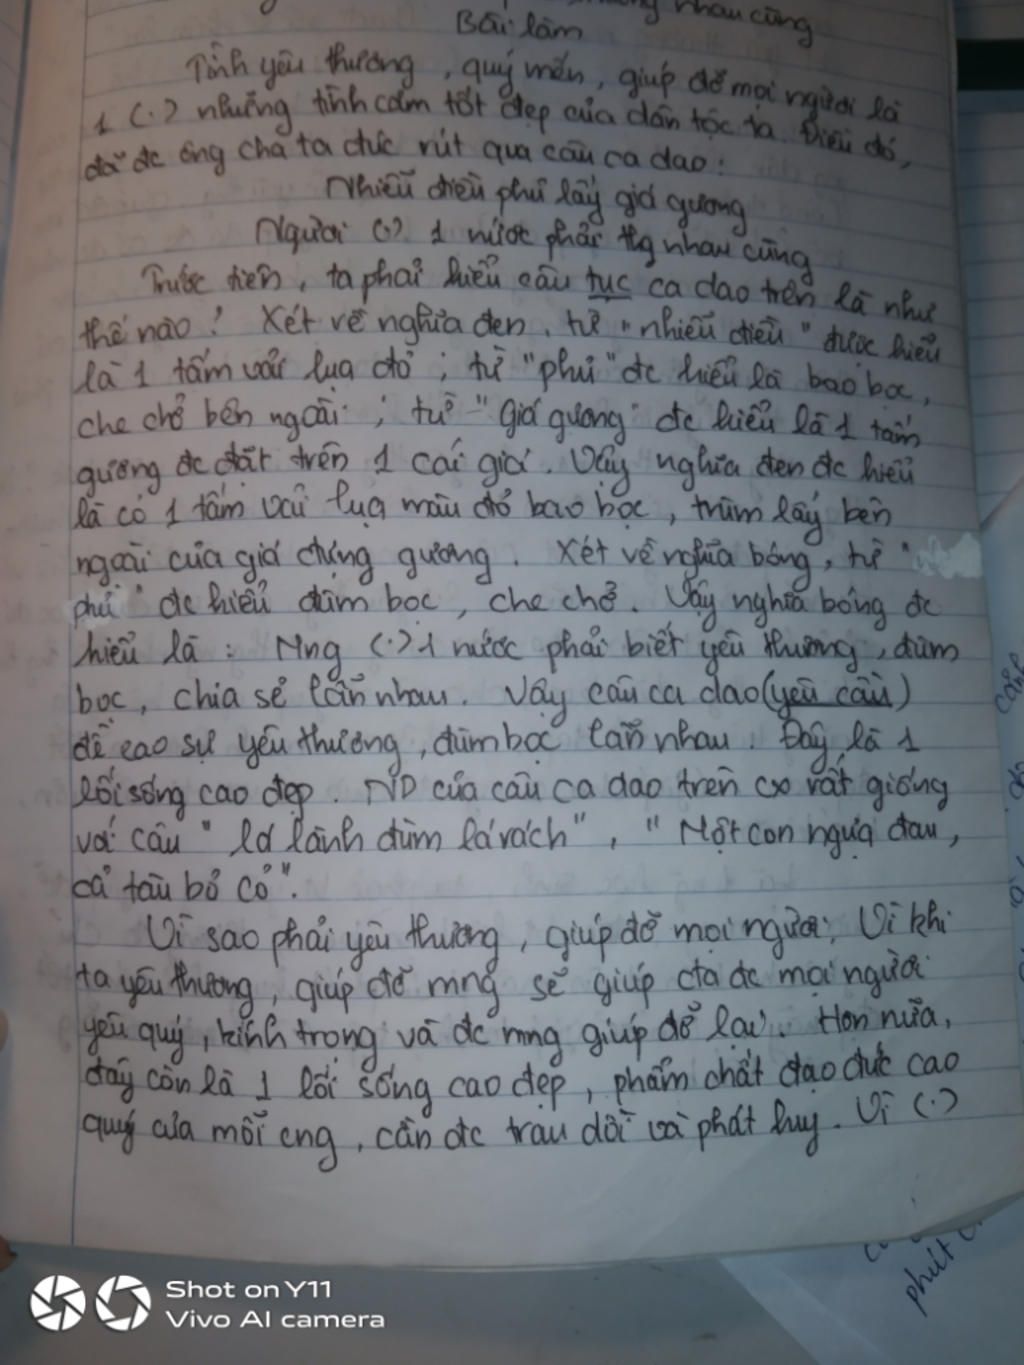 nhau cũng
Bài làm
Tình yêu thương, quý mến, giúp đỡ mọi người là
1 (.) những tình cảm tốt đẹp của dân tộc ta. Điều đó,
đã đc ông cha ta đúc rút qua câu ca dao:
Nhiễu điều phủ lấy giá gương
Người (.) 1 nước phải thg nhau cùng
Trước tiên, ta phải hiểu câu tục ca dao trên là như
thế nào? Xét về nghĩa đen, từ "nhiễu điều" được hiểu
là 1 tấm vải lụa đỏ; từ "phủ" đc hiểu là bao bọc,
che chở bên ngoài; từ "Giá gương" đc hiểu là 1 tấm
gương đc đặt trên 1 cái giá. Vậy nghĩa đen đc hiểu
là có 1 tấm vải lụa màu đỏ bao bọc, trùm lấy bên
ngoài của giá đựng gương. Xét về nghĩa bóng, từ "
phủ" đc hiểu đùm bọc, che chở. Vậy nghĩa bóng đc
hiểu là: Mng (.) 1 nước phải biết yêu thương, đùm
bọc, chia sẻ lẫn nhau. Vậy câu ca dao (yêu cầu)
đề cao sự yêu thương, đùm bọc lẫn nhau. Đây là 1
lối sống cao đẹp. ND của câu ca dao trên cx rất giống
với câu "lá lành đùm lá rách", "Một con ngựa đau,
cả tàu bỏ cỏ".
Vì sao phải yêu thương, giúp đỡ mọi người; Vì khi
ta yêu thương, giúp đỡ mng sẽ giúp cta đc mọi người
yêu quý, kính trọng và đc mng giúp đỡ lại. Hơn nữa,
đây còn là 1 lối sống cao đẹp, phẩm chất đạo đức cao
quý của mỗi cng, cần đc trau dồi và phát huy. Vì (.)
phút
Shot on Y11
Vivo AI camera